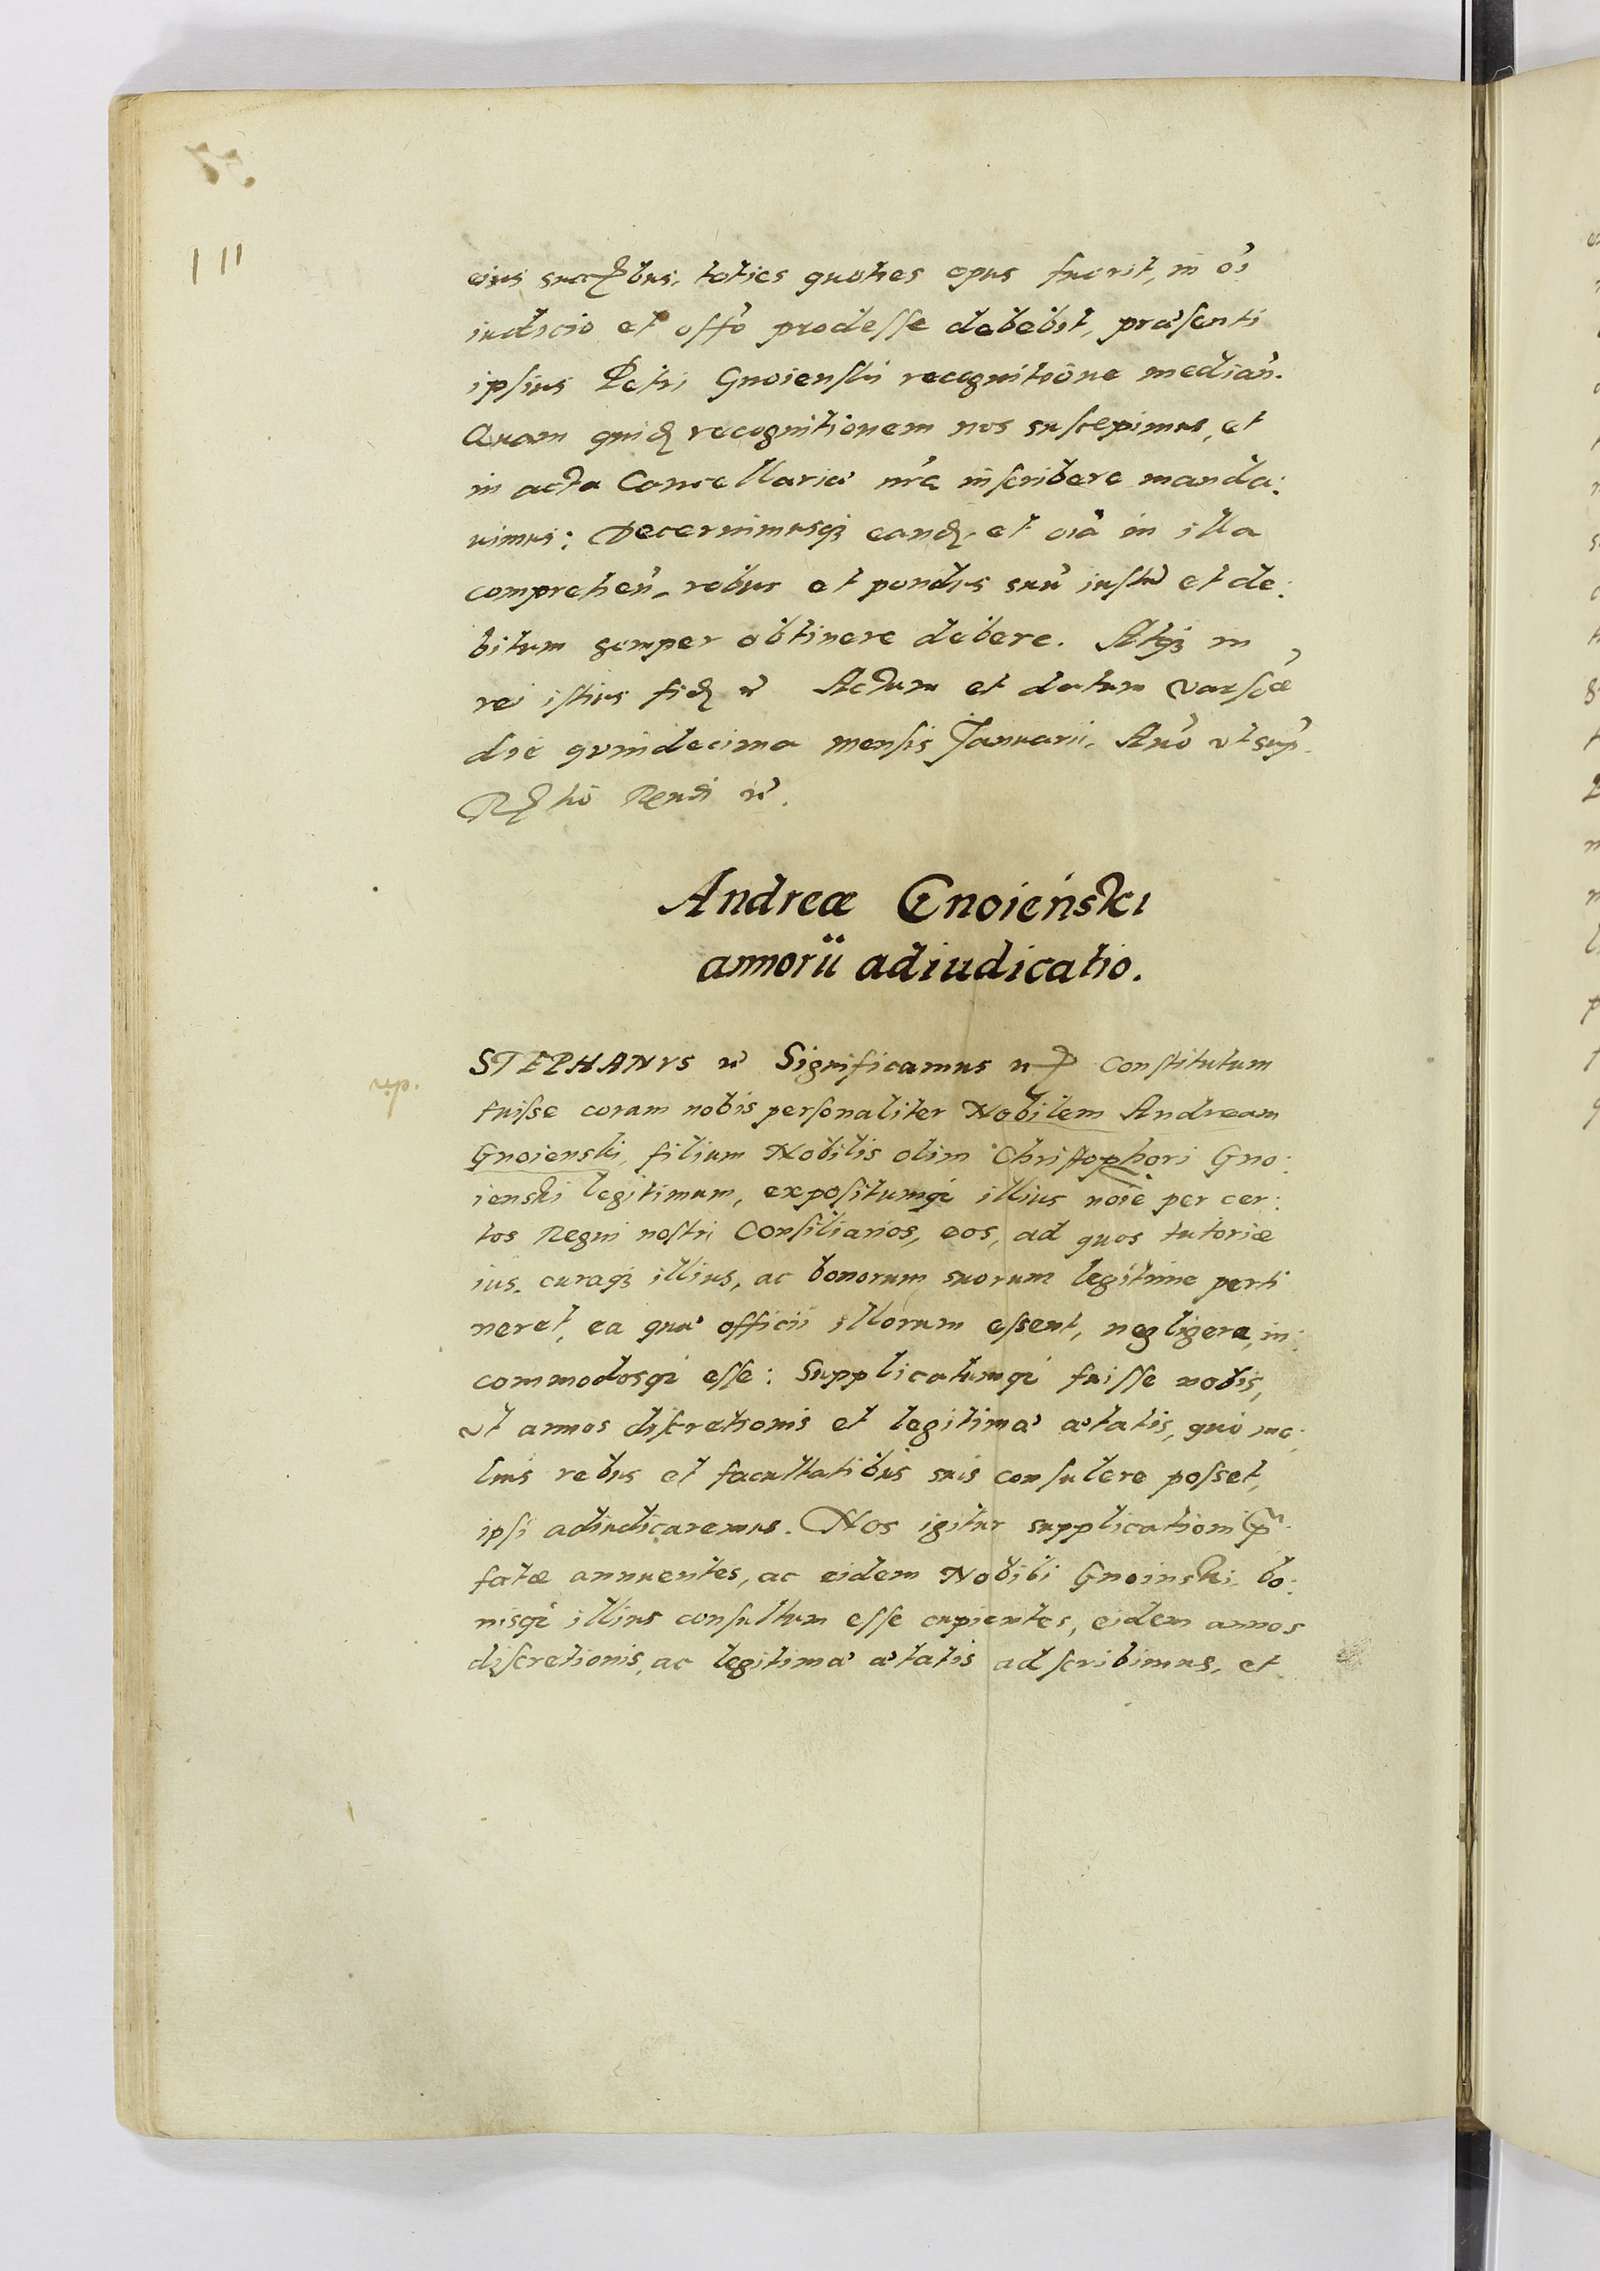 111
eius toties quoties opus fuerit, in oi
iudicio et offo prodesse debebit, præsenti
ipsius Petri Gnoienski recognitione median.
Quam quid recognitionem nos suscepimus, et
in acta Cancellariæ nræ inscribere manda:
uimus: Decernimusq; eand. et oia in illa
comprehen. robur et pondus suũ iustũ et de:
bitum semper obtinere debere. Atq; in
rei istius fid Actum et datum Varsoæ
die quindecima mensis Januarii. Año vt sup.
Andreæ Gnoieński
annorũ adiudicatio.
STEPHANVS Significamus Constitutum
fuisse coram nobis personaliter Nobilem Andream
Gnoienski, filium Nobilis olim Christophori Gno:
ienski legitimum, expositumq; illius noiẽ per cer:
tos Regni nostri Consiliarios, eos, ad quos tutoriæ
ius, curaq; illius, ac bonorum suorum legitime perti
neret, ea quæ officii illorum essent, negligere, in:
commodosq; esse: Supplicatumq; fuisse nobis,
vt annos discretionis et legitimæ ætatis, quò me:
lius rebus et facultatibus suis consulere posset,
ipsi adiudicaremus. Nos igitur supplicationi p
fatæ annuentes, ac eidem Nobili Gnoinski, bo:
nisq; illius consultum esse cupientes, eidem annos
discretionis, ac legitimæ ætatis adscribimus, et